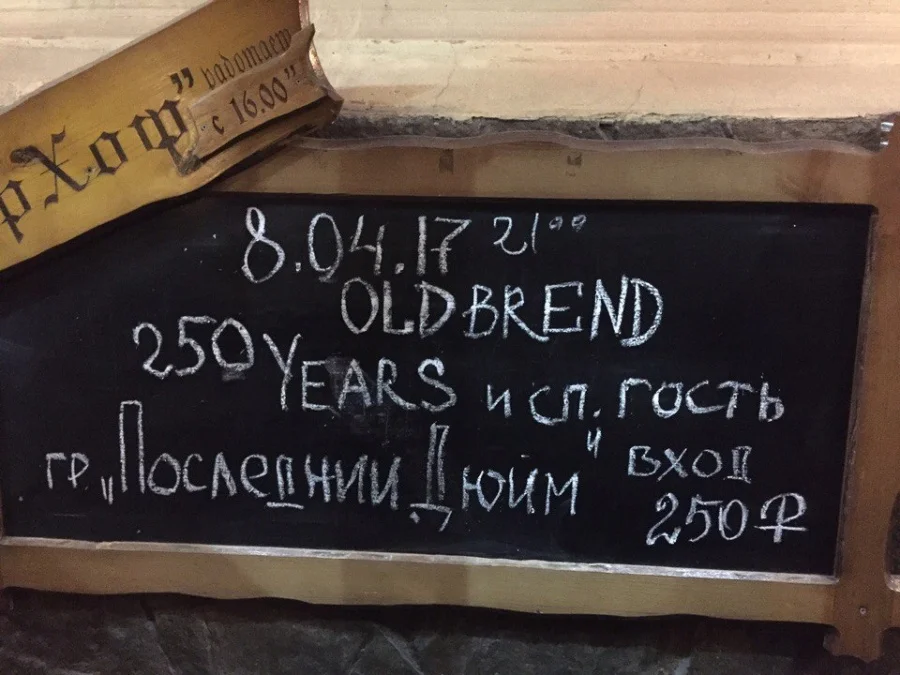 рХоф" работает
с 16.00"
8.04.17 21⁰⁰
OLD BREND
250 YEARS и сп. гость
гр. „Последнии Дюйм" вход
250 ₽